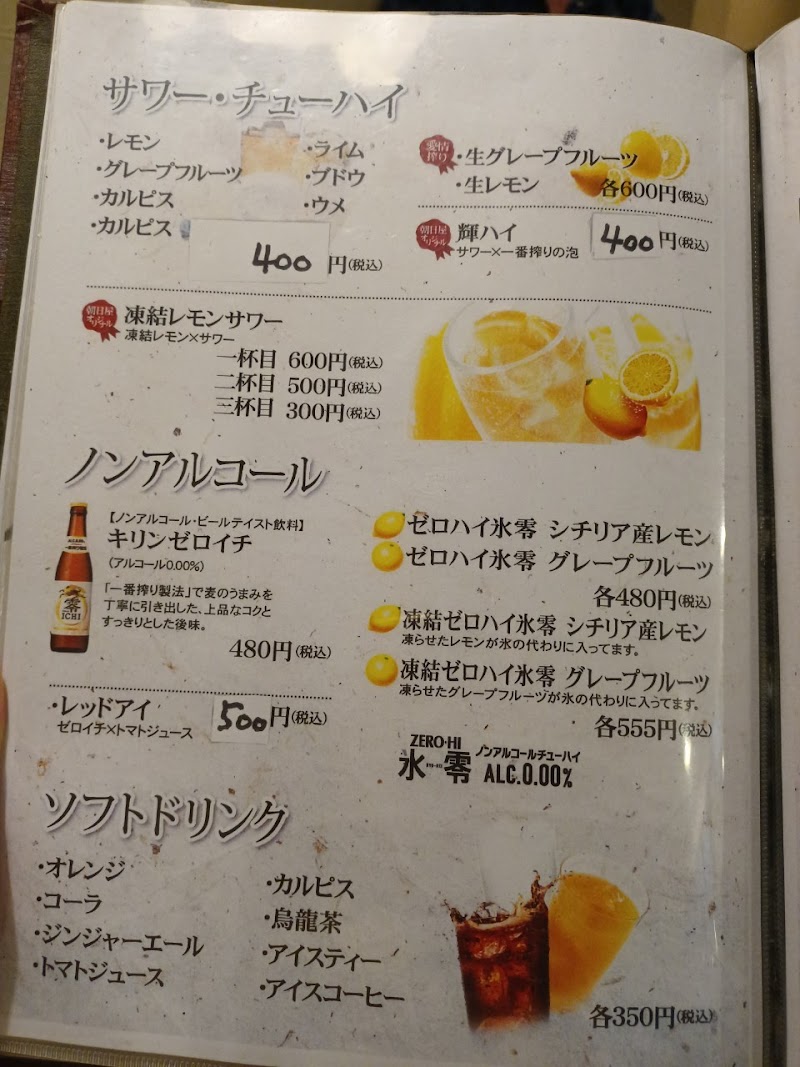 サワー・チューハイ
・レモン
・グレープフルーツ
・カルピス
・カルピス
・ライム
・ブドウ
・ウメ
400円(税込)
愛情搾り
・生グレープフルーツ
・生レモン 各600円(税込)
朝日屋オリジナル
輝ハイ 400円(税込)
サワー×一番搾りの泡
朝日屋オリジナル
凍結レモンサワー
凍結レモン×サワー
一杯目 600円(税込)
二杯目 500円(税込)
三杯目 300円(税込)
ノンアルコール
【ノンアルコール・ビールテイスト飲料】
キリンゼロイチ
(アルコール0.00%)
「一番搾り製法」で麦のうまみを
丁寧に引き出した、上品なコクと
すっきりとした後味。
480円(税込)
零
ICHI
・レッドアイ 500円(税込)
ゼロイチ×トマトジュース
ゼロハイ氷零 シチリア産レモン
ゼロハイ氷零 グレープフルーツ
各480円(税込)
凍結ゼロハイ氷零 シチリア産レモン
凍らせたレモンが氷の代わりに入ってます。
凍結ゼロハイ氷零 グレープフルーツ
凍らせたグレープフルーツが氷の代わりに入ってます。
各555円(税込)
ZERO-HI
氷零
ノンアルコールチューハイ
ALC.0.00%
ソフトドリンク
・オレンジ
・コーラ
・ジンジャーエール
・トマトジュース
・カルピス
・烏龍茶
・アイスティー
・アイスコーヒー
各350円(税込)